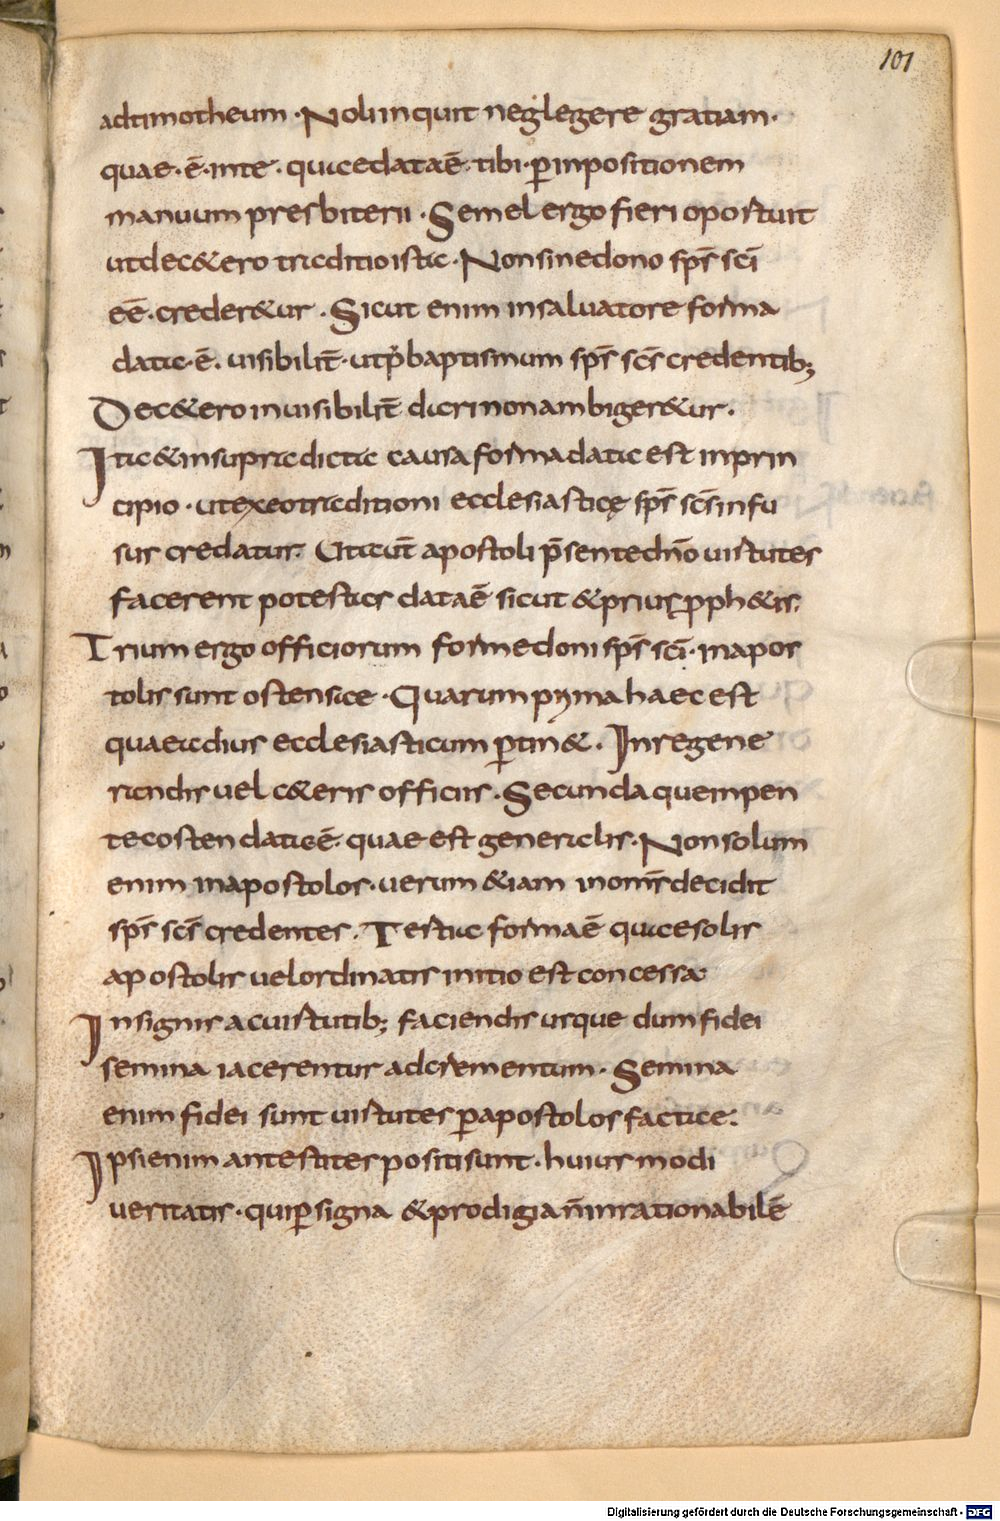 101
adtimotheum · Noli inquit neglegere gratiam ·
quae · ē · inte · quae data ē · tibi · ꝑ inpositionem
manuum presbiterii · Semel ergo fieri oportuit
ut dec&ero traditio ista · Non sine dono sp̄s sc̄i
eē · creder&ur · Sicut enim insaluatore forma
data · ē · uisibilit̄ · ut p̄ baptismum sp̄s sc̄s credentib;
Dec&ero inuisibilit̄ dari non ambiger&ur ·
Ita & insupradicta causa forma data est inprin
cipio · ut exeo traditioni ecclesiasticę sp̄s sc̄s infu
sus credatur · Ut aut̄ apostoli p̄sente dn̄o uirtutes
facerent potestas data ē sicut & prius ꝓph&is ·
Trium ergo officiorum formae doni sp̄s sc̄i · in apos
tolis sunt ostensae · Quarum pryma haec est
quae adius ecclesiasticum ꝑtin& · In regene
randis uel c&eris officiis · Secunda quae inpen
tecosten data ē · quae est generalis · Non solum
enim in apostolos · uerum &iam in om̄s decidit
sp̄s sc̄s credentes · Tertia forma ē quae solis
apostolis uel ordinatis initio est concessa ·
In signis ac uirtutib; faciendis usque dum fidei
semina iacerentur ad crementum · Semina
enim fidei sunt uirtutes ꝑ apostolos factae :
Ipsi enim antestites positi sunt · huius modi
ueritatis · qui ꝑ signa & prodigia n̄ inrationabilē
Digitalisierung gefördert durch die Deutsche Forschungsgemeinschaft - DFG